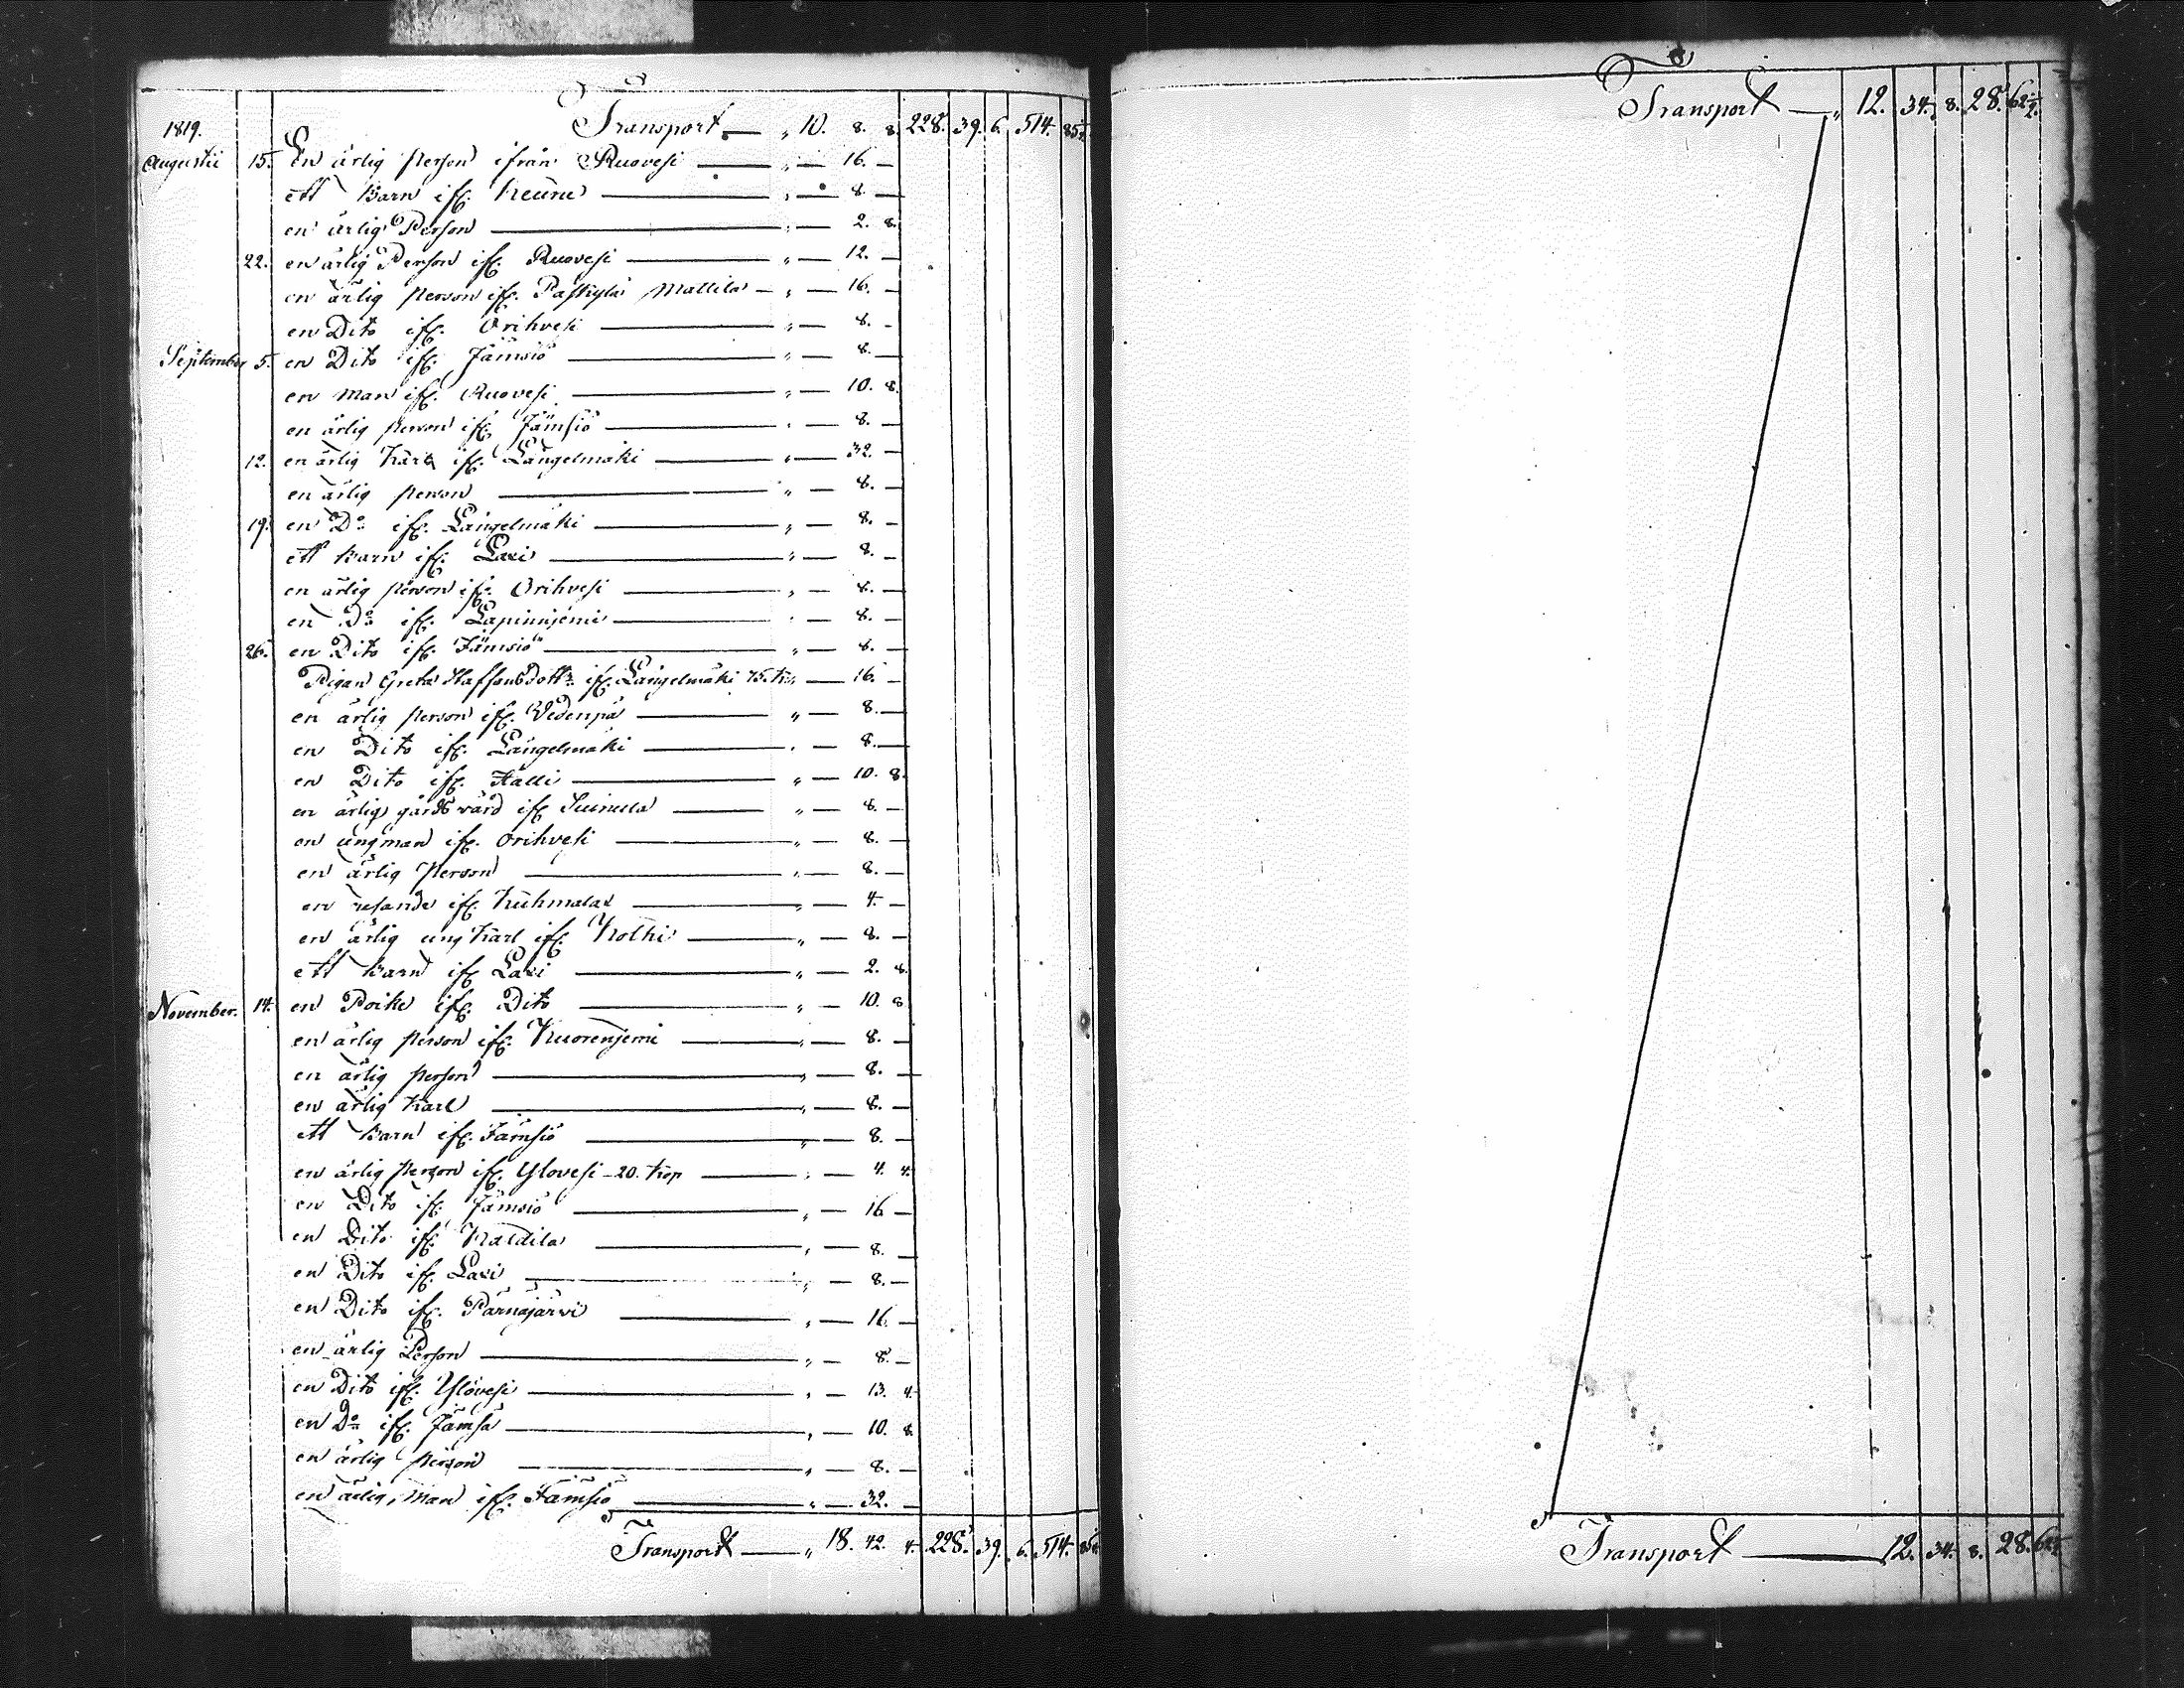 1819. Transport — „ 10. 8. 8. 228. 39. 6. 514. 85½
Augustii 15. En ärlig Person ifrån Ruovesi — „ — 16. —
ett Barn ifr. Keuru — „ — 8. —
en ärlig Person — „ — 2. 8.
22. en ärlig Person ifr. Ruovesi — „ — 12. —
en ärlig person ifr. Mattila — „ — 16. —
en Dito ifr. Orihvesi — „ — 8. —
September 5. en Dito ifr. Jämsiö — „ — 8. —
en Man ifr. Ruovesi — „ — 10. 8.
en ärlig person ifr. Jämsiö — „ — 8. —
12. en ärlig Karl ifr. Längelmäki — „ — 32. —
en ärlig person — „ — 8. —
19. en Do ifr. Längelmäki — „ — 8. —
ett Barn ifr. Lari — „ — 8. —
en ärlig person ifr. Orihvesi — „ — 8. —
en Do ifr. Lapinnjemi — „ — 8. —
26. en Dito ifr. Jämsiö — „ — 8. —
Pigan Greta Staffansdottr ifr. Längelmäki 75. k. „ — 16. —
en ärlig person ifr. Vedenpä — „ — 8. —
en Dito ifr. Längelmäki — „ — 8. —
en Dito ifr. Halli — „ — 10. 8.
en ärlig gårdsvärd ifr Suinula — „ — 8. —
en ungman ifr. Orihvesi — „ — 8. —
en ärlig Person — „ — 8. —
en resande ifr. Kuhmalax — „ — 4. —
en ärlig ung Karl ifr. Kolhi — „ — 8. —
ett Barn ifr Lari — „ — 2. 8.
November. 14. en Poike ifr. Dito — „ — 10. 8
en ärlig person ifr. Kuorenjemi — „ — 8. —
en ärlig person — „ — 8. —
en ärlig Karl — „ — 8. —
ett Barn ifr. Jämsiö — „ — 8. —
en ärlig person ifr. Ylovesi - 20. kop — „ — 4. 4.
en Dito ifr. Jämsiö — „ — 16 —
en Dito ifr. Kaldila — „ — 8. —
en Dito ifr. Lari — „ — 8. —
en Dito ifr. Pärnäjärvi — „ — 16. —
en ärlig Person — „ — 8. —
en Dito ifr. Ylövesi — „ — 13. 4.
en Do ifr. Jämsä — „ — 10. 8.
en ärlig person — „ — 8. —
en ärlig Man ifr. Jämsiö — „ — 32. —
Transport — „ 18. 42. 4. 228. 39. 6. 514. 85½
Transport — „ 12. 34. 8. 28. 62½.
Transport — 12. 34. 8. 28. 62½